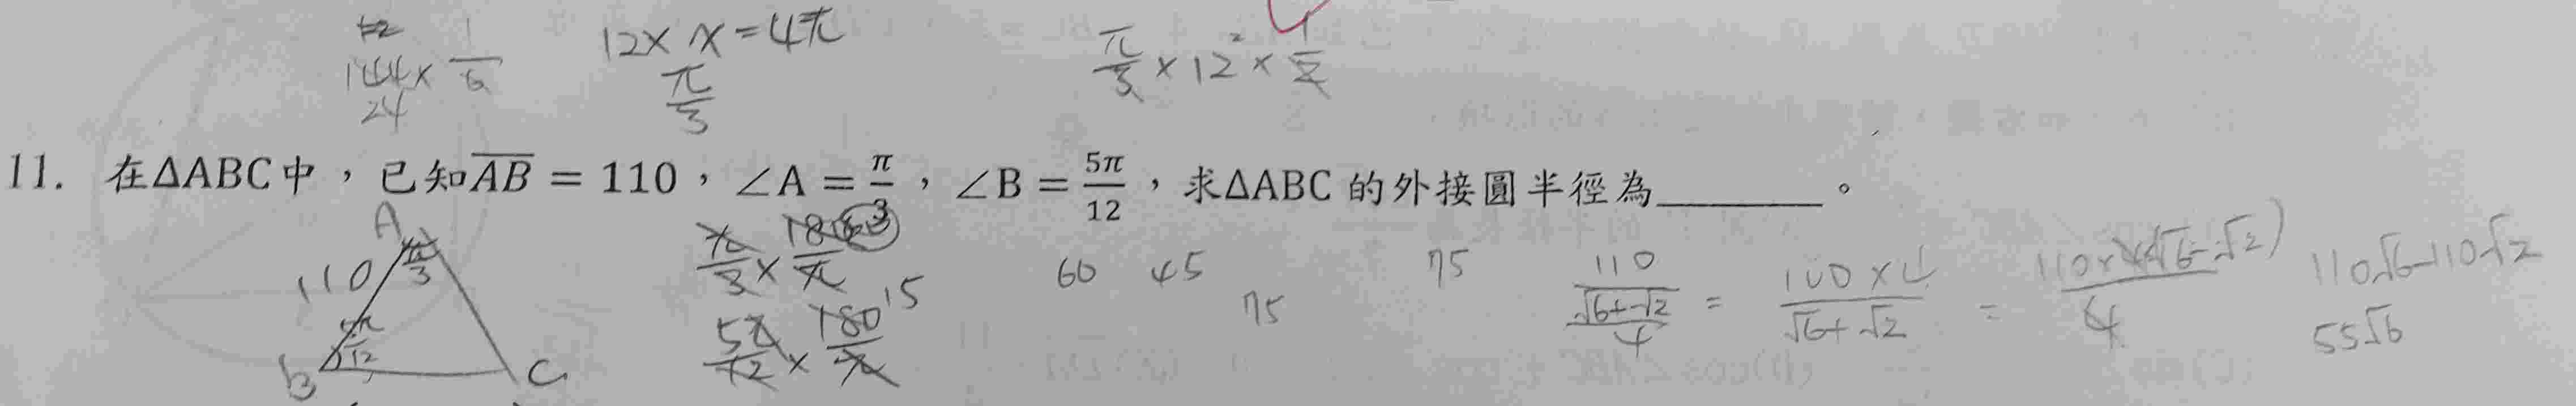 144 × 1/6
24
12 × x = 4π
π/3
π/3 × 12² × 1/2
11. 在ΔABC中，已知AB = 110，∠A = π/3，∠B = 5π/12，求ΔABC 的外接圓半徑為________。
A
110
π/3
5π/12
B
C
π/3 × 180/π
5π/12 × 180/π 15
60 45
75
75
110/((√6+√2)/4) = 110×4/(√6+√2) = 110×4(√6-√2)/4
110√6-110√2
55√6